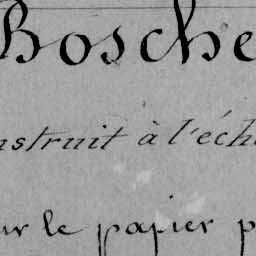 Bosche
nstruit à l'éch
ur le papier p